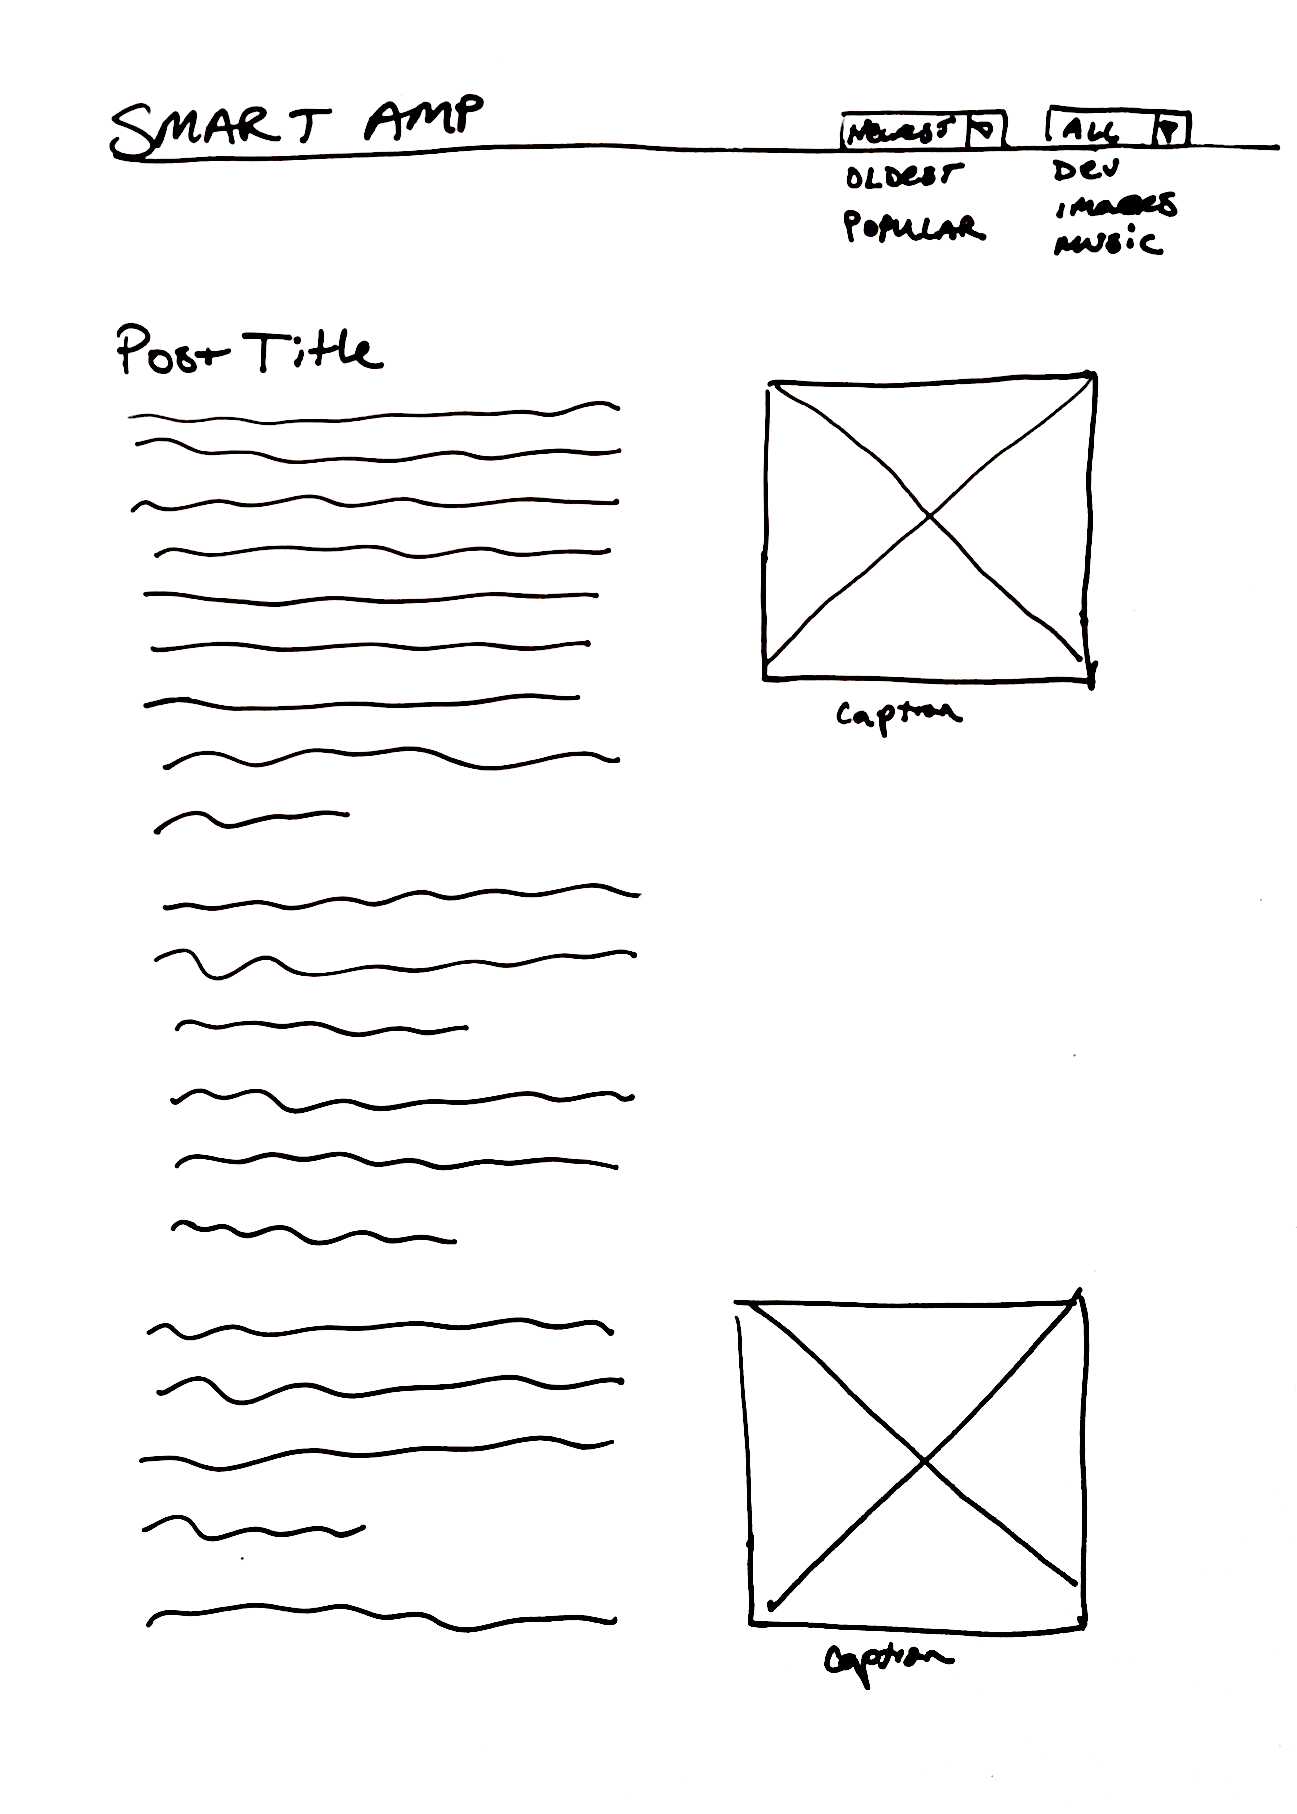 SMART AMP
NEWEST
ALL
OLDEST
POPULAR
DEV
IMAGES
MUSIC
Post Title
Caption
Caption